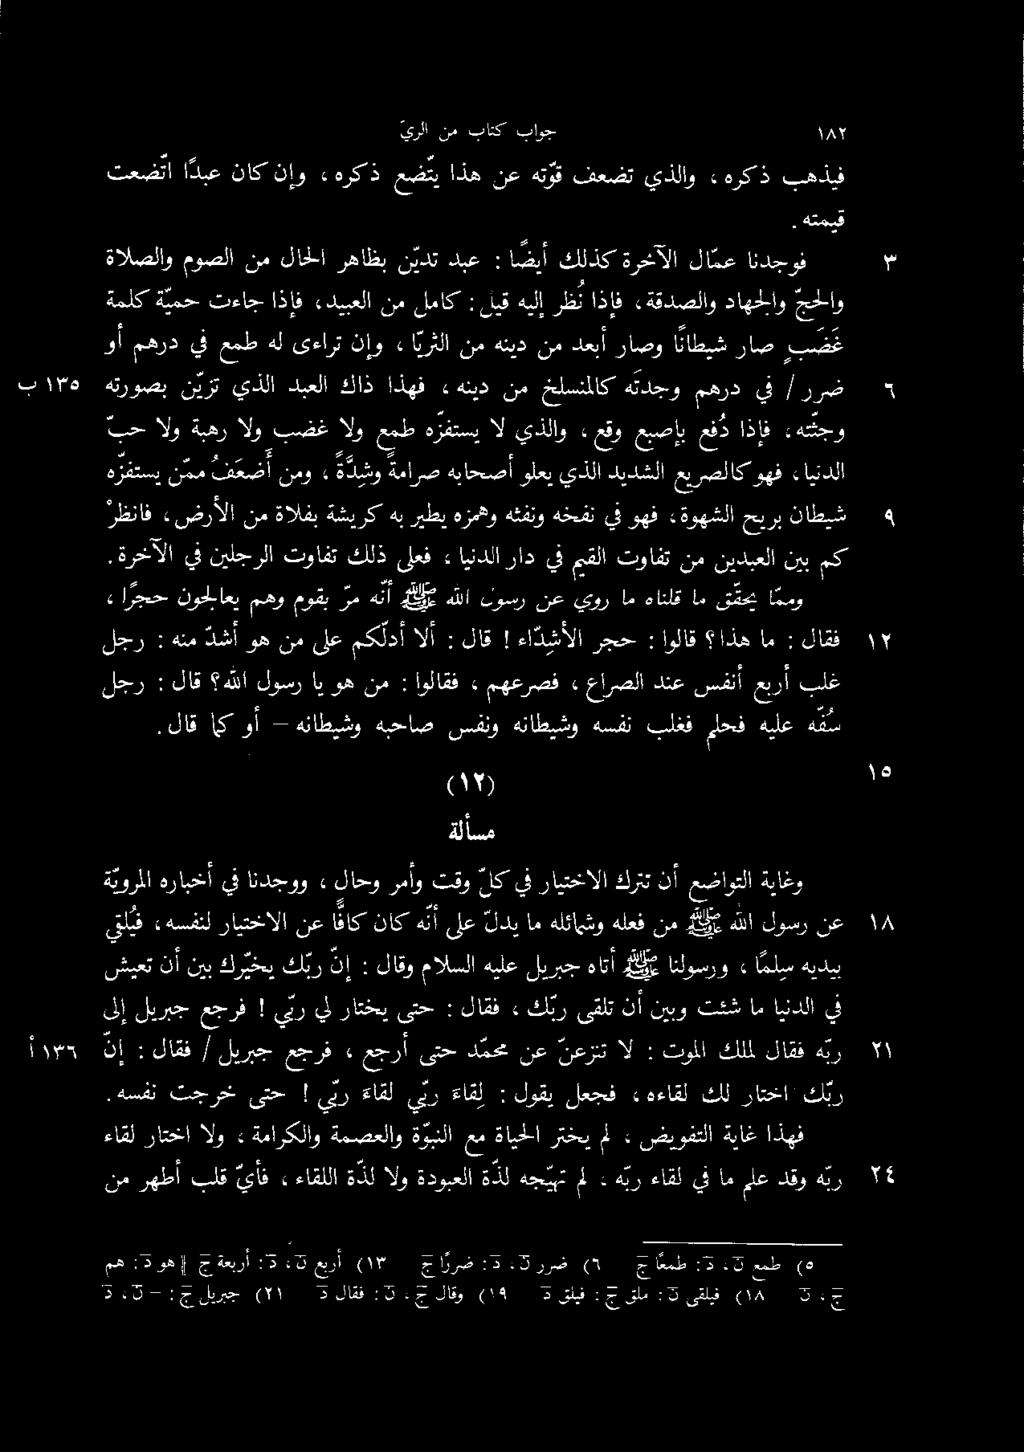 ١٨٢ جواب كتاب من الريّ
فيذهب ذكره ، والذي تضعف قوّته عن هذا يتّضع ذكره ، وإن كان عبدًا اتّضعت
قيمته .
٣ فوجدنا عمّال الآخرة كذلك أيضًا : عبد تديّن بظاهر الحال من الصوم والصلاة
والحجّ والجهاد والصدقة ، فإذا نُظر إليه قيل : كامل من العبيد ، فإذا جاءت حميّة كلمة
غَضَبٍ صار شيطانًا وصار أبعد من دينه من الثريّا ، وإن تراءى له طمع في درهم أو
٦ ضرر / في درهم وجدتَه كالمنسلخ من دينه ، فهذا ذاك العبد الذي تزيّن بصورته ١٣٥ ب
وجثّته ، فإذا دُفع بإصبع وقع ، والذي لا يستفزّه طمع ولا غضب ولا رهبة ولا حبّ
الدنيا ، فهو كالصريع الشديد الذي يعلو أصحابه صرامةً وشِدَّةً ، ومن أَضعَفُ ممّن يستفزّه
٩ شيطان بريح الشهوة ، فهو في نفخه ونفثه وهمزه يطير به كريشة بفلاة من الأرض ، فانظرْ
كم بين العبدين من تفاوت القيم في دار الدنيا ، فعلى ذلك تفاوت الرجلين في الآخرة .
وممّا يحقّق ما قلناه ما روي عن رسول الله ﷺ أنّه مرّ بقوم وهم يعالجون حجرًا ،
١٢ فقال : ما هذا ؟ قالوا : حجر الأشِدّاء ! قال : ألا أدلّكم على من هو أشدّ منه : رجل
غلب أربع أنفس عند الصراع ، فصرعهم ، فقالوا : من هو يا رسول الله ؟ قال : رجل
سُفّه عليه فحلم فغلب نفسه وشيطانه ونفس صاحبه وشيطانه – أو كما قال .
١٥ (١٢)
مسألة
وغاية التواضع أن تترك الاختيار في كلّ وقت وأمر وحال ، ووجدنا في أخباره المرويّة
١٨ عن رسول الله ﷺ من فعله وشمائله ما يدلّ على أنّه كان كافًّا عن الاختيار لنفسه ، فيُلقي
بيديه سِلمًا ، ورسولنا ﷺ أتاه جبريل عليه السلام وقال : إنّ ربّك يخيّرك بين أن تعيش
في الدنيا ما شئت وبين أن تلقى ربّك ، فقال : حتى يختار لي ربّي ! فرجع جبريل إلى
٢١ ربّه فقال لملك الموت : لا تنزعنّ عن محمّد حتى أرجع ، فرجع جبريل / فقال : إنّ ١٣٦ أ
ربّك اختار لك لقاءه ، فجعل يقول : لِقاءَ ربّي لقاءَ ربّي ! حتى خرجت نفسه .
فهذا غاية التفويض ، لم يختر الحياة مع النبوّة والعصمة والكرامة ، ولا اختار لقاء
٢٤ ربّه وقد علم ما في لقاء ربّه ، لم تهيّجه لذّة العبودة ولا لذّة اللقاء ، فأيّ قلب أطهر من
٥) طمع ن ، د : طمعًا ج ٦) ضرر ن ، د : ضررًا ج ١٣) أربع ن ، د : أربعة ج || هو د : هم
ج ، ن ١٨) فيلقى ن : ملق ج : فيلق د ١٩) وقال ج ، ن : فقال د ٢١) جبريل ج : – ن ، د